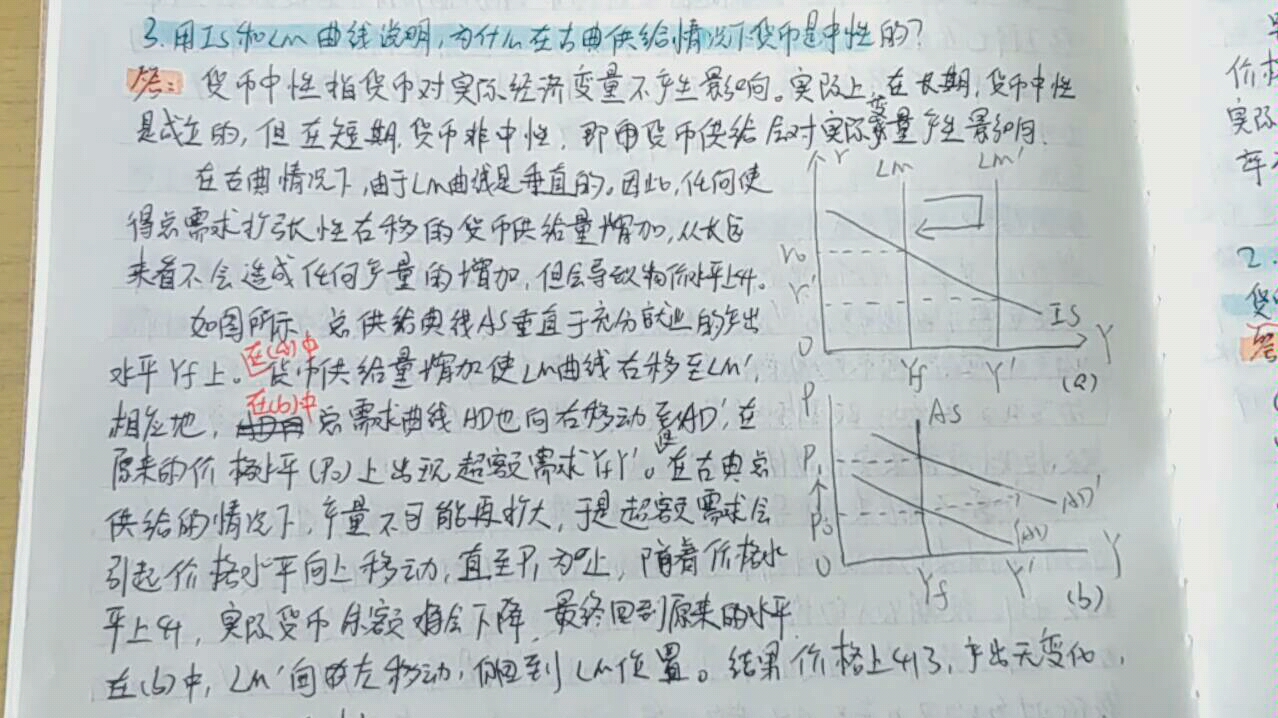 3.用IS和LM曲线说明,为什么在古典供给情况下货币是中性的?
答:货币中性指货币对实际经济变量不产生影响。实际上,在长期,货币中性
是成立的,但在短期,货币非中性,即由货币供给会对实际变量产生影响.
在古典情况下,由于LM曲线是垂直的。因此,任何使
得总需求扩张性右移的货币供给量增加,从长远
来看不会造成任何产量的增加,但会导致物价水平上升。
如图所示,总供给曲线AS垂直于充分就业的产出
水平Yf上。在(a)中货币供给量增加使LM曲线右移至LM',
相应地,在(b)中总需求曲线AD也向右移动至AD',在
原来的价格水平(P₀)上出现超额需求YfY'。在古典总
供给的情况下,产量不可能再扩大,于是超额需求会
引起价格水平向上移动,直至P₁为止,随着价格水
平上升,实际货币余额将会下降,最终回到原来的水平
在(b)中,LM'向左移动,回到LM位置。结果价格上升了,产出无变化,
r
LM
LM'
r₀
r'
IS
O
Yf
Y'
Y
(a)
P
AS
P₁
P₀
AD'
AD
O
Yf
Y'
Y
(b)
价格
实际
2.
货
答